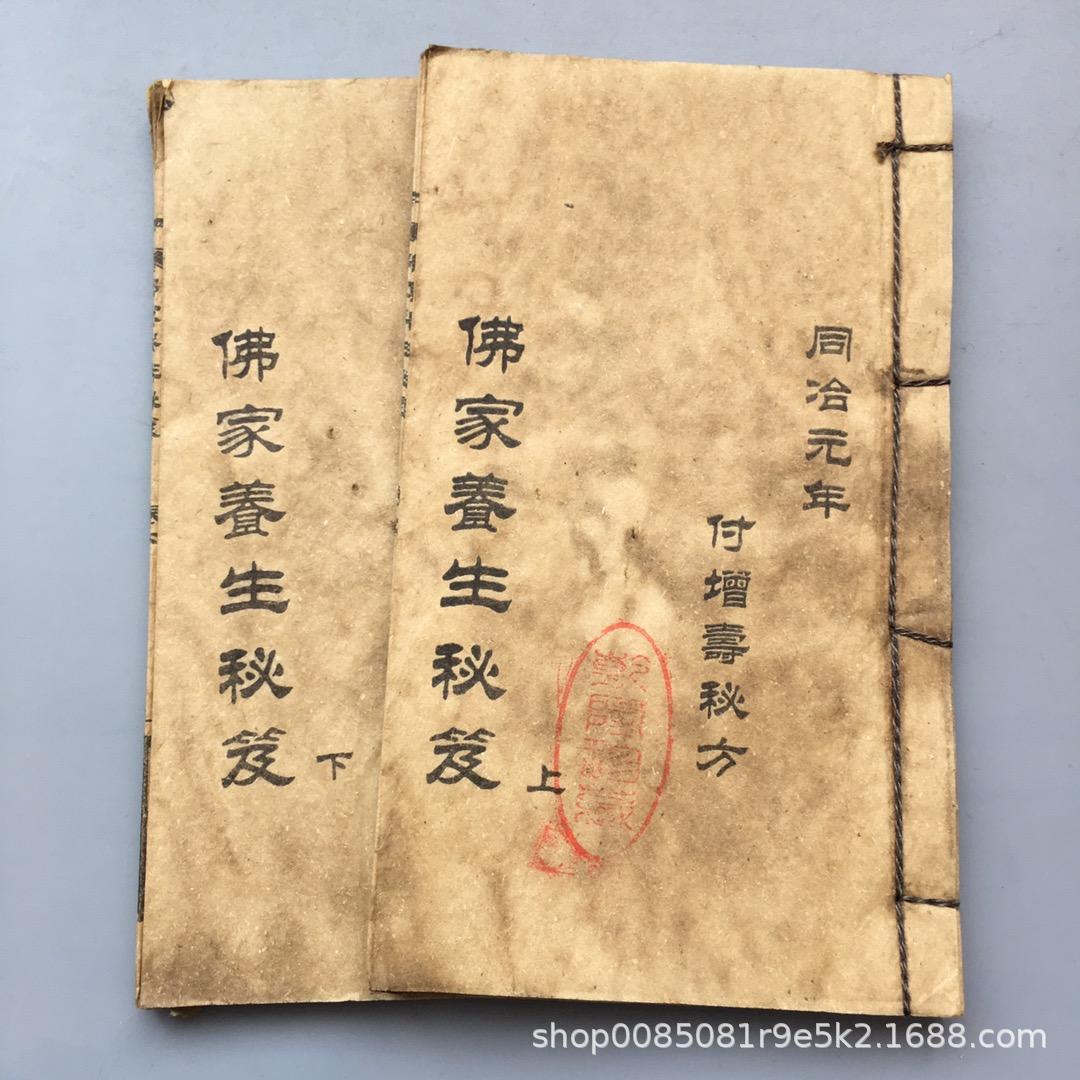 同治元年
付增壽秘方
佛家養生秘笈
上
佛家養生秘笈
下
shop0085081r9e5k2.1688.com